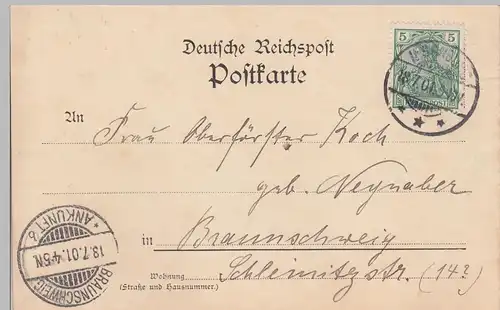 Deutsche Reichspost
Postkarte
5 5
18.7.01.
An Frau Oberförster Koch
geb. Neynaber
in Braunschweig
Wohnung Schleinitzstr. (14?)
(Straße und Hausnummer.)
* ANKUNFT 8 *
18.7.01.4-5N
BRAUNSCHWEIG